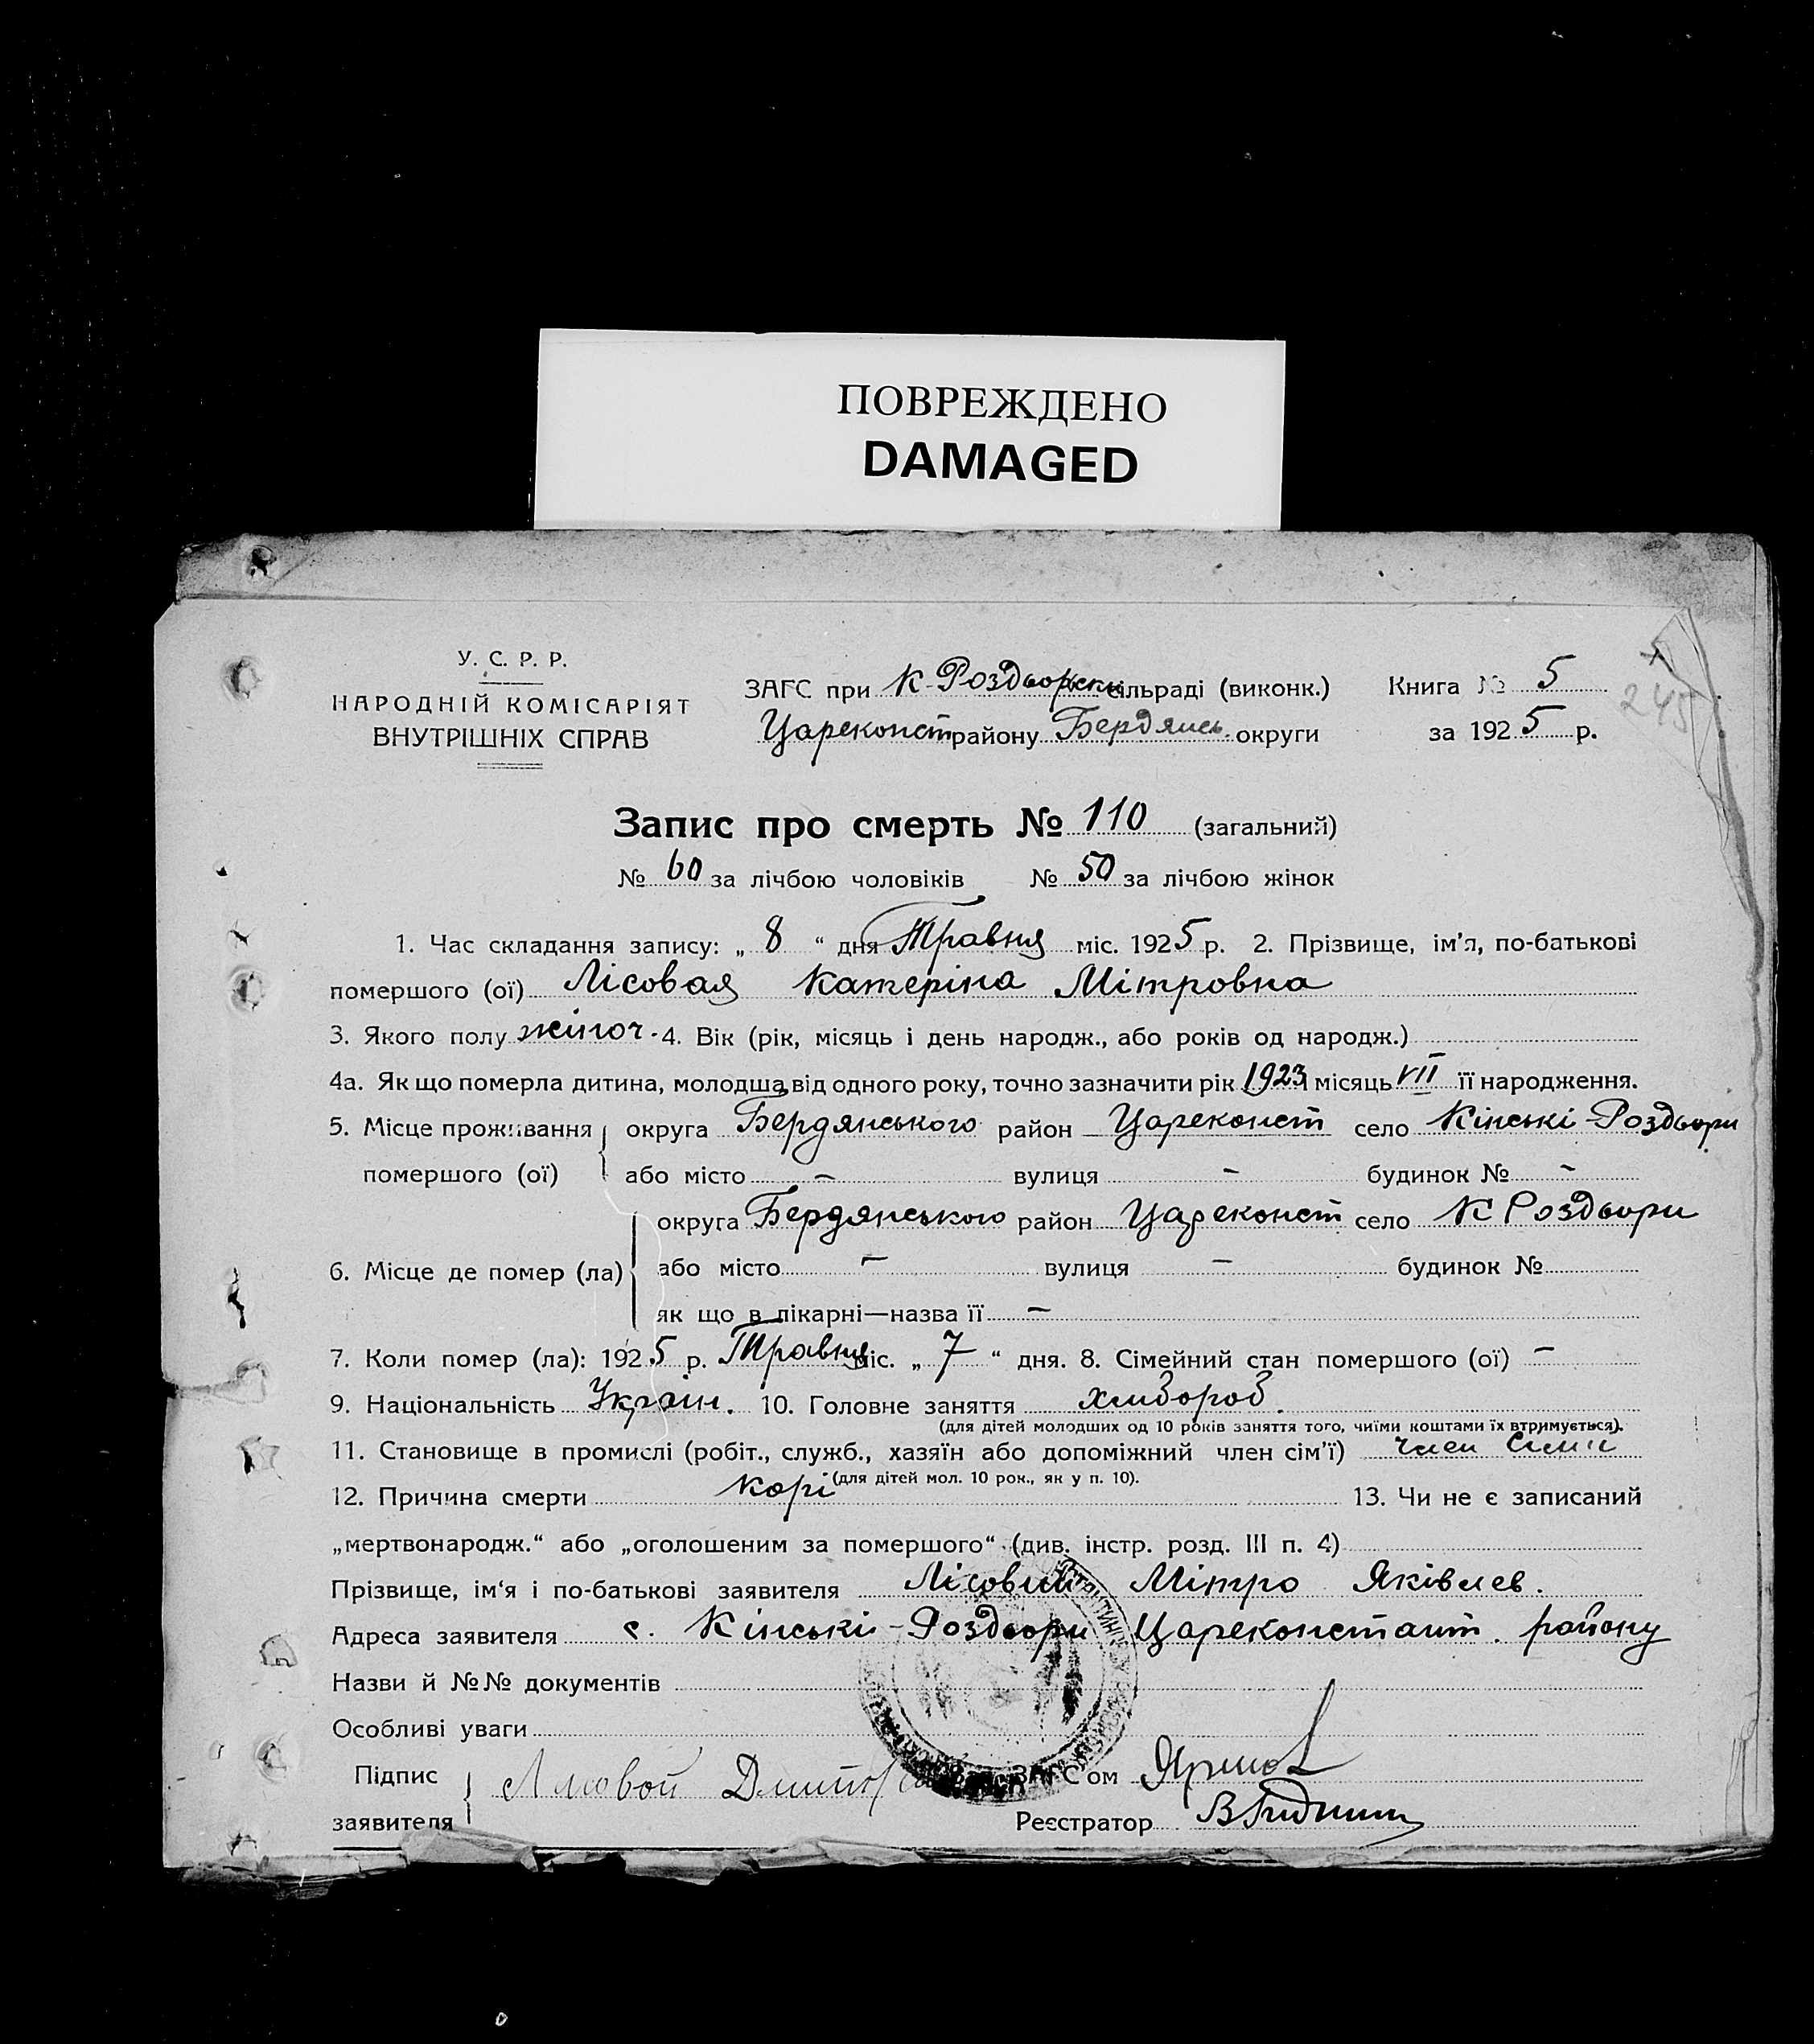 ПОВРЕЖДЕНО
DAMAGED
У. С. Р. Р.
НАРОДНІЙ КОМІСАРІЯТ
ВНУТРІШНІХ СПРАВ
ЗАГС при К-Роздорськ сільраді (виконк.)
Цареконст району Бердянсь. округи
Книга № 5
за 1925 р.
245
Запис про смерть № 110 (загальний)
№ 60 за лічбою чоловіків № 50 за лічбою жінок
1. Час складання запису: „ 8 “ дня Травня міс. 1925 р. 2. Прізвище, ім’я, по-батькові
помершого (ої) Лісовая Катеріна Мітровна
3. Якого полу жіноч. 4. Вік (рік, місяць і день народж., або років од народж.)
4а. Як що померла дитина, молодша від одного року, точно зазначити рік 1923 місяць VII її народження.
5. Місце проживання округа Бердянського район Цареконст село Кінські-Роздори
помершого (ої) або місто – вулиця – будинок № –
округа Бердянського район Цареконст село К Роздори
6. Місце де помер (ла) або місто – вулиця – будинок №
як що в лікарні—назва її –
7. Коли помер (ла): 1925 р. Травня міс. „ 7 “ дня. 8. Сімейний стан помершого (ої) –
9. Національність Україн. 10. Головне заняття хлибороб.
(для дітей молодших од 10 років заняття того, чиїми коштами їх втримується).
11. Становище в промислі (робіт., служб., хазяїн або допоміжний член сім’ї) член
(для дітей мол. 10 рок., як у п. 10).
12. Причина смерти корі 13. Чи не є записаний
„мертвонародж.“ або „оголошеним за помершого“ (див. інстр. розд. III п. 4)
Прізвище, ім‘я і по-батькові заявителя Лісовий Мітро Яківлев.
Адреса заявителя с. Кінські-Роздори Цареконстант. району
Назви й №№ документів
Особливі уваги
Підпис
заявителя
Лисовой ЗАГС’ом
Реєстратор